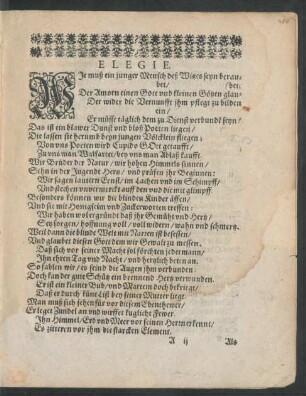 ELEGIE.
WIe muß ein junger Mensch deß Witzes seyn berau-
bet / bet /
Der Amorn einen Gott vnd kleinen Götzen glau-
Der wider die Vernunfft jhm pflegt zu bilden
ein /
Er müsse täglich dem zu Dienst verbundẽ seyn /
Das ist ein blawer Dunst vnd bloß Poeten liegen /
Die lassen sie herumb beyn jungen Völcklein fliegen:
Von vns Poeten wird Cupido GOtt getaufft /
Zu vns man Walfartet / bey vns man Ablaß kaufft.
Wir Brüder der Natur / wir hohen Himmels sinnen /
Sehn in der Jugend Hertz / vnd prüfen jhr Beginnen:
Wir sagen lautern Ernst / im Lachen vnd im Schimpff /
Und stechen vnvermerckt auff den vnd die mit glimpff.
Besonders können wir die blinden Kinder äffen /
Und sie mit Honigseim vnd Zuckerworten treffen:
Wir haben wol ergründt daß jhr Gemühtt vnd Hertz /
Sey sorgen / hoffnung voll / voll wündtren / wahn vnd schmertz.
Weil dann die blinde Welt mit Narren ist besessen /
Und glaubet dieser Gott dem wir Gewalt zu messen.
Daß sich vor seiner Macht sol förchten jederman /
Ihn ehren Tag vnd Nacht / vnd hertzlich beten an.
So fablen wir / es seind die Augen jhm verbunden:
Doch kan der gute Schütz ein brennend Hertz verwunden.
Er ist ein kleiner Bub / vnd Martem doch bekriegt /
Daß er durch küne List bey seiner Mutter liegt.
Man muß sich sehen für vor diesem Ebenthewer /
Er leget Zundel an vnd wirffet kuglicht fewer.
Ihn Himmel / Erd vnd Meer vor seinen Herrn erkennt /
Es zitteren vor jhm die starcken Element.
A ij Als